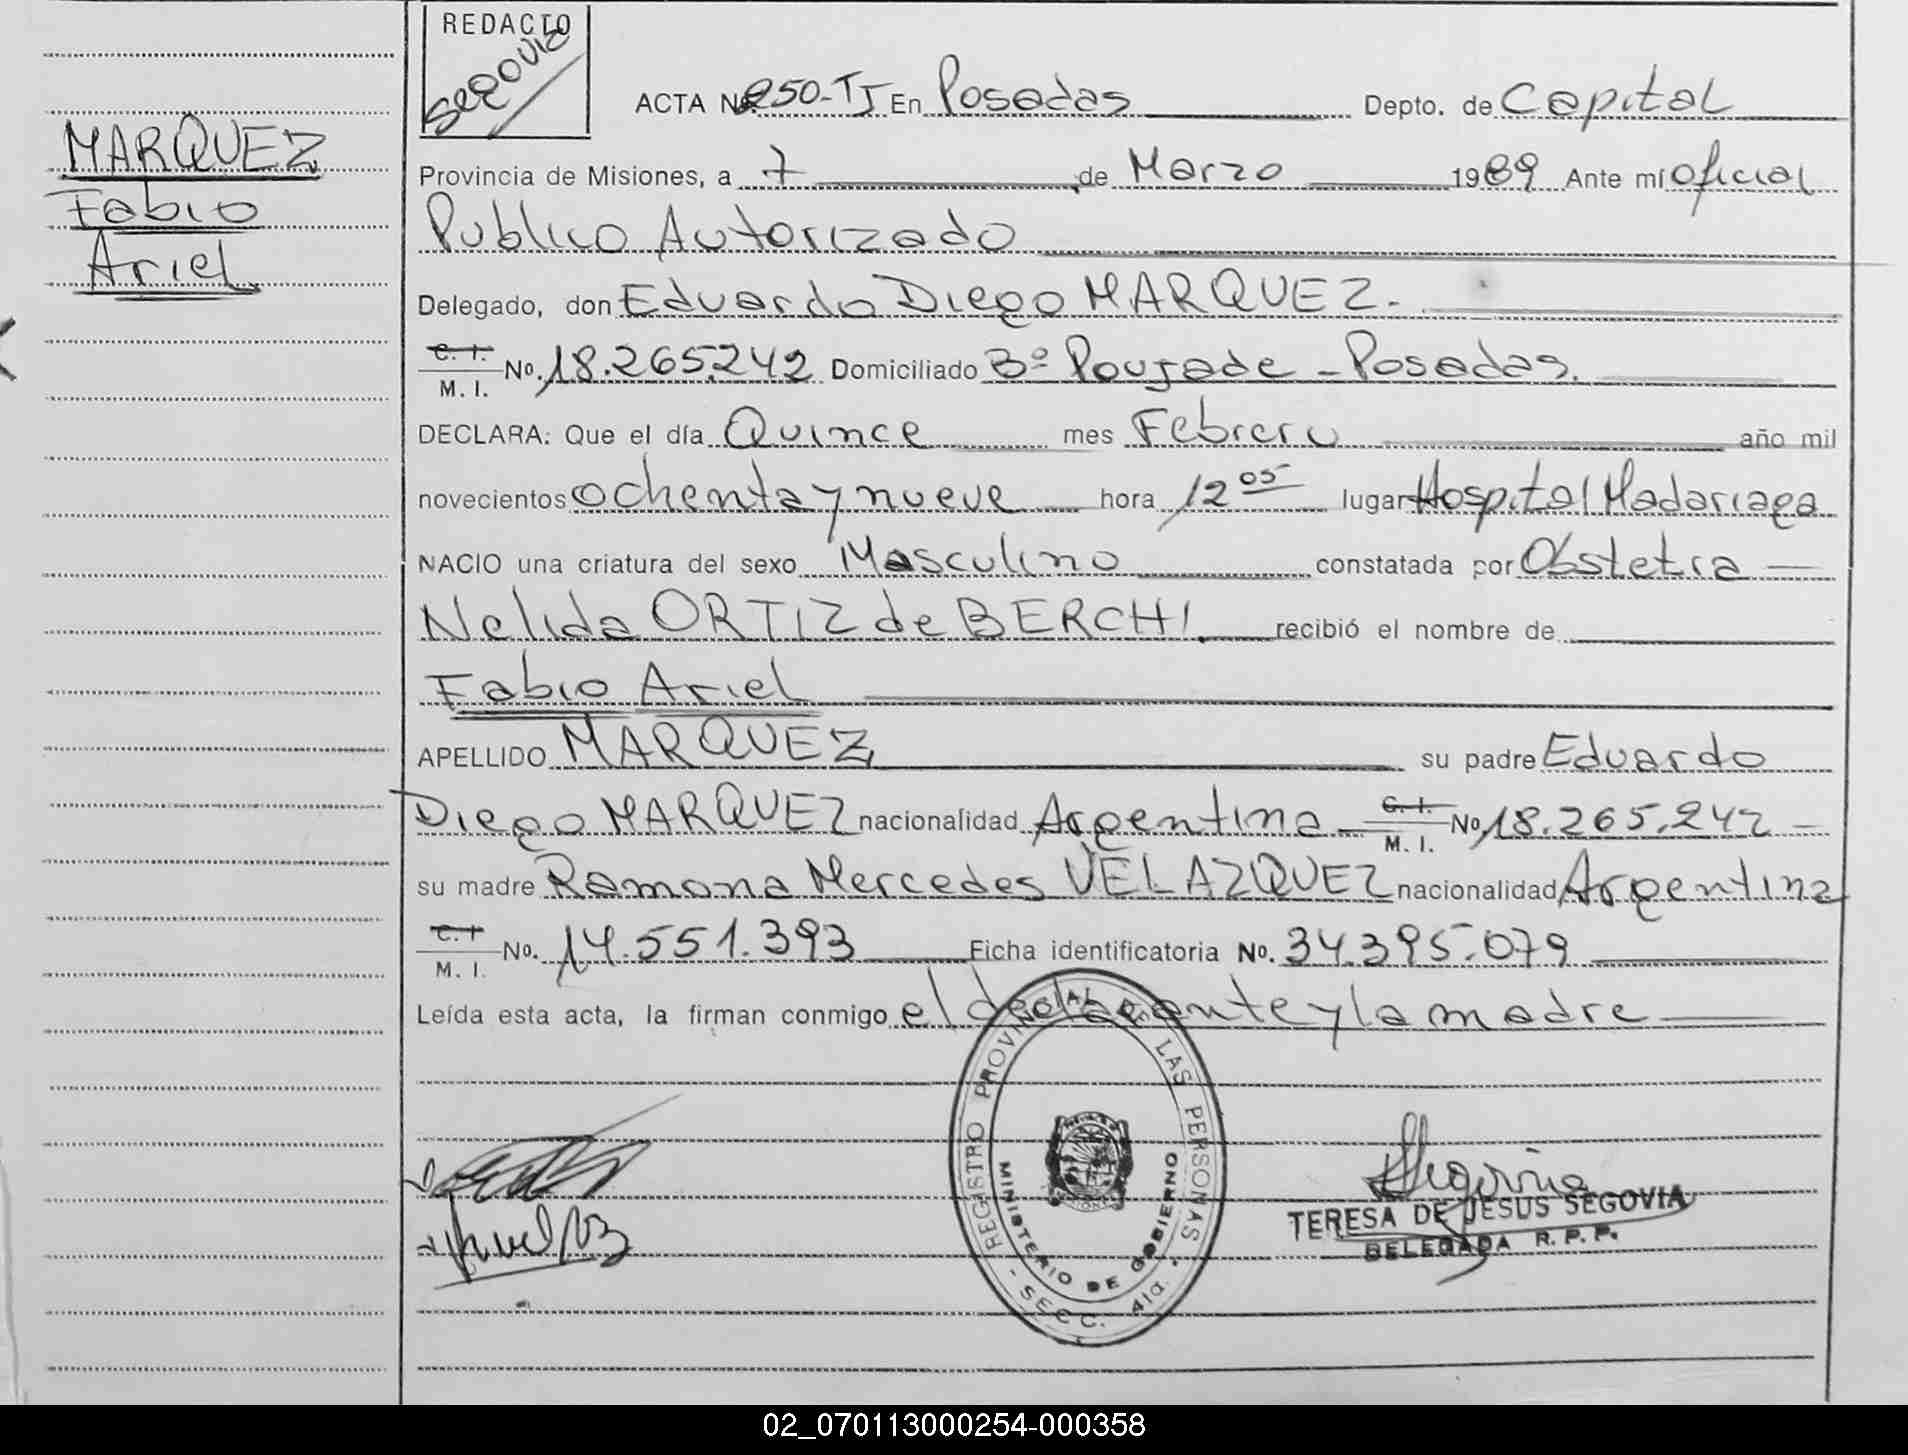 REDACTO
Segovia
MARQUEZ
Fabio
Ariel
ACTA Nº 250-TJ En Posadas Depto. de Capital
Provincia de Misiones, a 7 de Marzo 1989 Ante mí oficial
Publico Autorizado
Delegado, don Eduardo Diego MARQUEZ.
C. I. / M. I. No. 18.265.242 Domiciliado Bº Poujade - Posadas.
DECLARA: Que el día Quince mes Febrero año mil
novecientos ochenta y nueve hora 12 05 lugar Hospital Madariaga
NACIO una criatura del sexo Masculino constatada por Obstetra
Nelida ORTIZ de BERCHI recibió el nombre de
Fabio Ariel
APELLIDO MARQUEZ su padre Eduardo
Diego MARQUEZ nacionalidad Argentina C. I. / M. I. No. 18.265.242
su madre Ramona Mercedes VELAZQUEZ nacionalidad Argentina
C. I / M. I. No. 14.551.393 Ficha identificatoria No. 34.395.079
Leída esta acta, la firman conmigo el declarante y la madre
REGISTRO PROVINCIAL DE LAS PERSONAS
MINISTERIO DE GOBIERNO
- SECC. 4ta. -
Segovia
TERESA DE JESUS SEGOVIA
DELEGADA R. P. P.
02_070113000254-000358